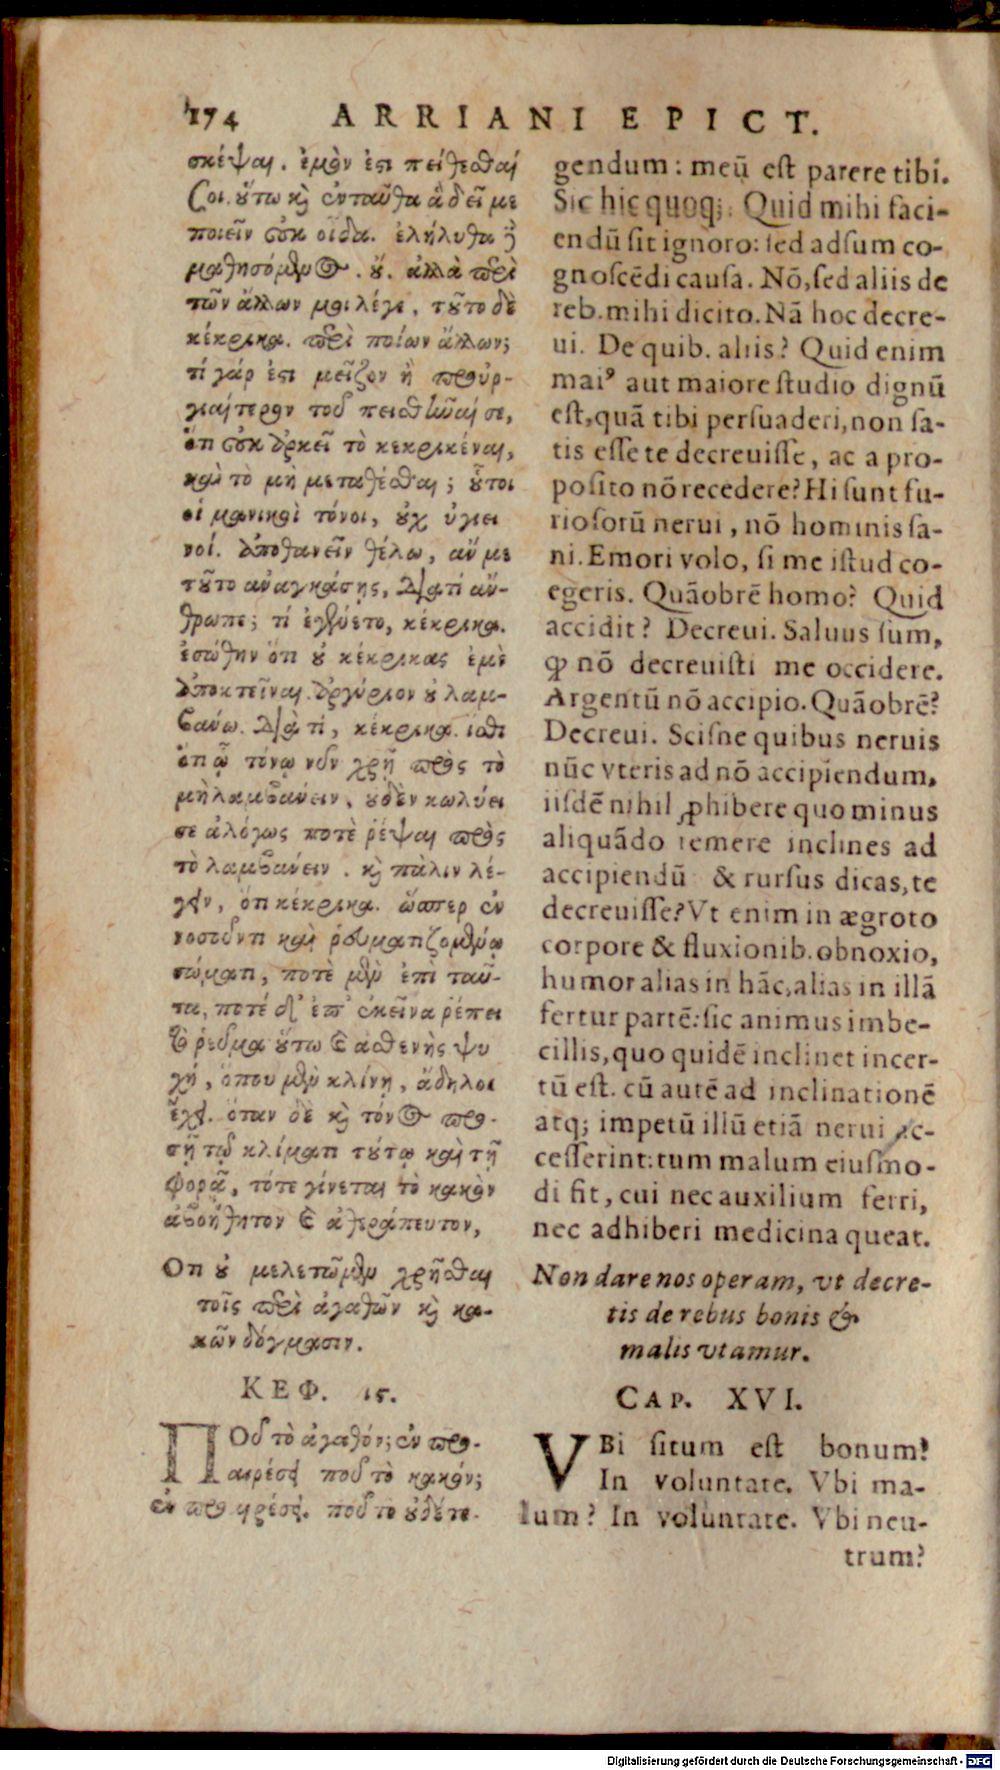 174 ARRIANI EPICT.
σκέψαι. ἐμόν ἐστι πείθεσθαί
σοι. οὕτω καὶ ἐνταῦθα ἃ δεῖ με
ποιεῖν οὐκ οἶδα. ἐλήλυθα δὲ
μαθησόμενος. οὔ. ἀλλὰ περὶ
τῶν ἄλλων μοι λέγε, τοῦτο δὲ
κέκρικα. περὶ ποίων ἄλλων;
τί γάρ ἐστι μεῖζον ἢ προὐρ-
γιαίτερον τοῦ πεισθῆναί σε,
ὅτι οὐκ ἀρκεῖ τὸ κεκρικέναι,
καὶ τὸ μὴ μεταθέσθαι; οὗτοι
οἱ μανικοὶ τόνοι, οὐχ ὑγιει
νοί. ἀποθανεῖν θέλω, ἄν με
τοῦτο ἀναγκάσῃς, Διατί ἄν-
θρωπε; τί ἐγένετο, κέκρικα.
ἐσώθην ὅτι οὐ κέκρικας ἐμὲ
ἀποκτεῖναι. ἀργύριον οὐ λαμ-
βάνω. Διὰ τί, κέκρικα. ἴσθι
ὅτι ᾧ τόνῳ νῦν χρῇ πρὸς τὸ
μὴ λαμβάνειν, οὐδὲν κωλύει
σε ἀλόγως ποτὲ ῥέψαι πρὸς
τὸ λαμβάνειν. καὶ πάλιν λέ-
γειν, ὅτι κέκρικα. ὥσπερ ἐν
νοσοῦντι καὶ ῥευματιζομένῳ
σώματι, ποτὲ μὲν ἐπὶ ταῦ-
τα, ποτέ δ' ἐπ' ἐκεῖνα ῥέπει
τὸ ῥεῦμα οὕτω καὶ ἀσθενὴς ψυ
χή, ὅπου μὲν κλίνῃ, ἄδηλον
ἔχει. ὅταν δὲ καὶ τόνος προσ-
ῇ τῷ κλίματι τούτῳ καὶ τῇ
φορᾷ, τότε γίνεται τὸ κακὸν
ἀβοήθητον καὶ ἀθεράπευτον,
Οτι οὐ μελετῶμεν χρῆσθαι
τοῖς περὶ ἀγαθῶν καὶ κα-
κῶν δόγμασιν.
ΚΕΦ. 15.
ΠΟῦ τὸ ἀγαθόν; ἐν προ-
αιρέσει ποῦ τὸ κακόν;
ἐν προαιρέσει. ποῦ τὸ οὐδέτε-
gendum: meū est parere tibi.
Sic hic quoq;. Quid mihi faci-
endū sit ignoro: sed adsum co-
gnoscēdi causa. Nō, sed aliis de
reb. mihi dicito. Nā hoc decre-
ui. De quib. aliis? Quid enim
maiꝰ aut maiore studio dignū
est, quā tibi persuaderi, non sa-
tis esse te decreuisse, ac a pro-
posito nō recedere? Hi sunt fu-
riosorū nerui, nō hominis sa-
ni. Emori volo, si me istud co-
egeris. Quāobrē homo? Quid
accidit? Decreui. Saluus sum,
ꝙ nō decreuisti me occidere.
Argentū nō accipio. Quāobrē?
Decreui. Scisne quibus neruis
nūc vteris ad nō accipiendum,
iisdē nihil ꝓhibere quo minus
aliquādo temere inclines ad
accipiendū & rursus dicas, te
decreuisse? Vt enim in ægroto
corpore & fluxionib. obnoxio,
humor alias in hāc, alias in illā
fertur partē: sic animus imbe-
cillis, quo quidē inclinet incer-
tū est. cū autē ad inclinationē
atq; impetū illū etiā nerui ac-
cesserint: tum malum eiusmo-
di fit, cui nec auxilium ferri,
nec adhiberi medicina queat.
Non dare nos operam, vt decre-
tis de rebus bonis &
malis vtamur.
CAP. XVI.
VBi situm est bonum?
In voluntate. Vbi ma-
lum? In voluntate. Vbi neu-
trum?
Digitalisierung gefördert durch die Deutsche Forschungsgemeinschaft - DFG